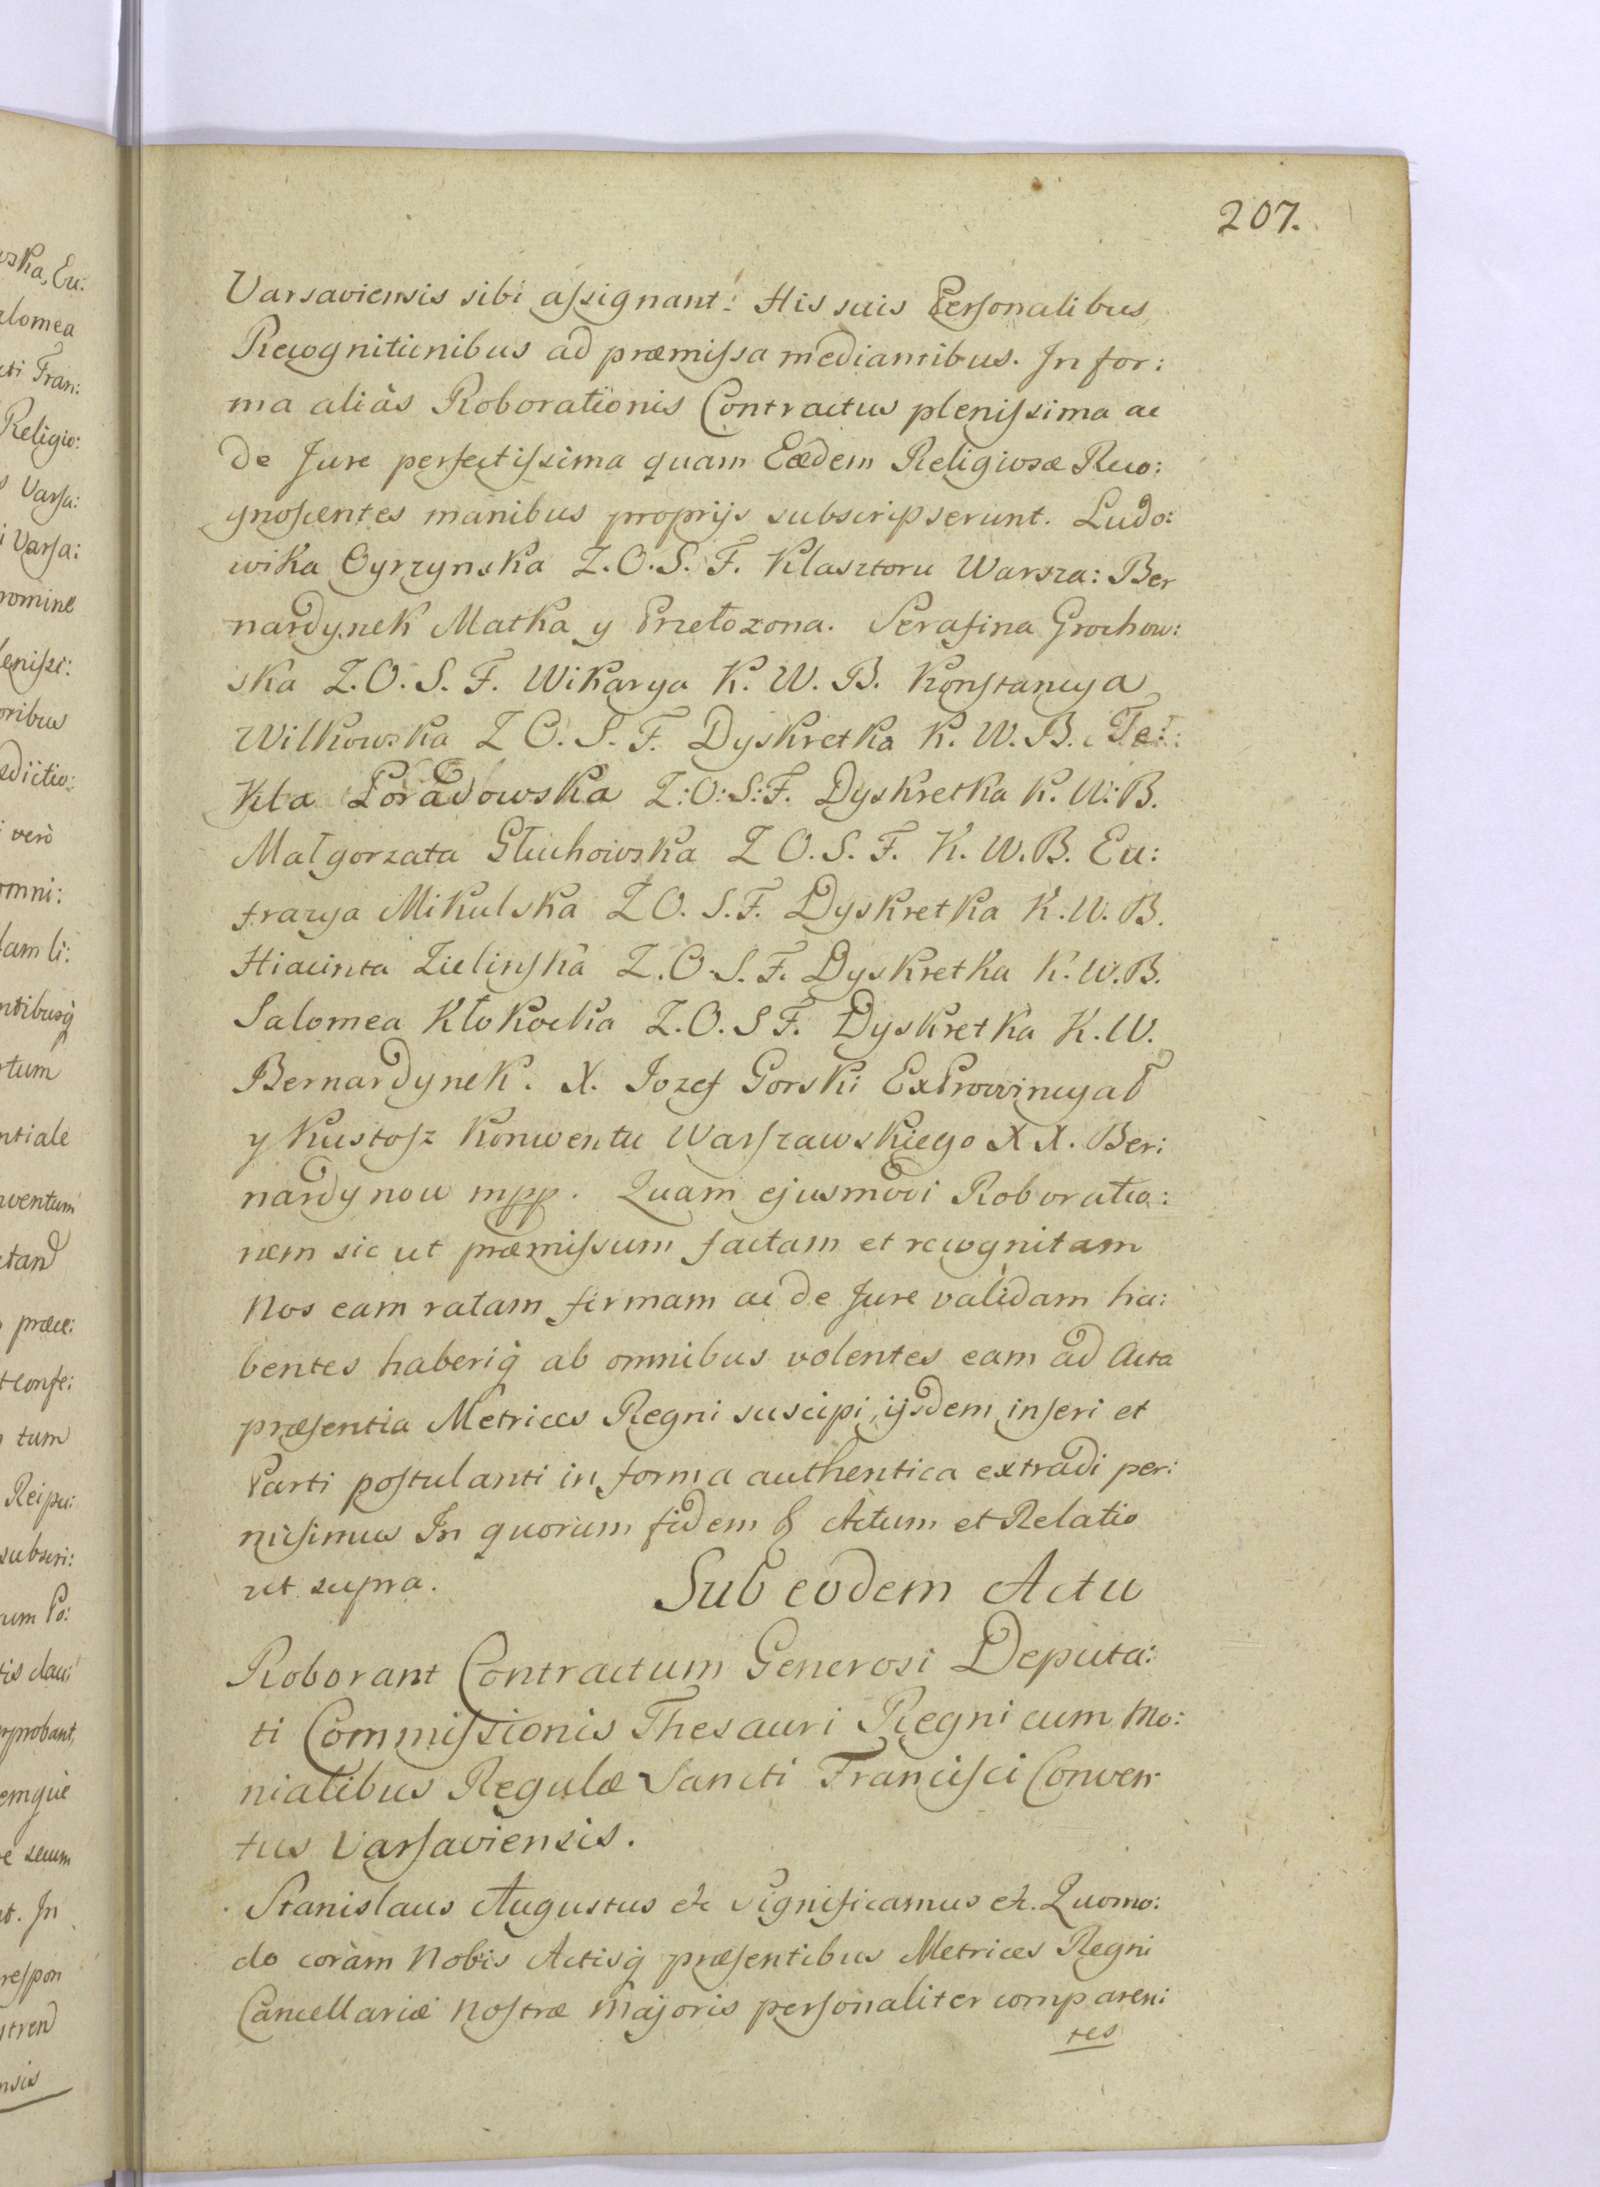 207.
Varsaviensis sibi assignant. His suis Personalibus
Recognitionibus ad præmissa mediantibus. In for:
ma aliàs Roborationis Contractus plenissima ac
de Jure perfectissima quam Eædem Religiosæ Reco:
gnoscentes manibus proprijs subscripserunt. Ludo:
wika Oyrzynska Z.O.S.F. Klasztoru Warsza: Ber
nardynek Matka y Przełozona. Serafina Grochow:
ska Z.O.S.F. Wikarya K.W.B. Konstancya
Wilkowska Z O.S.F. Dyskretka K.W.B. Te:
Kla Poradowska Z:O:S:F. Dyskretka K.W:B.
Małgorzata Głuchowska Z O.S.F. K.W.B. Eu:
frazya Mikulska Z O.S.F. Dyskretka K.W.B.
Hiacinta Zielinska Z.O.S.F. Dyskretka K.W.B.
Salomea Kłokocka Z.O.S F. Dyskretka K.W.
Bernardynek. X. Jozef Gorski ExProwincyał
y Kustosz Konwentu Warszawskiego X X. Ber:
nardynow mpp. Quam ejusmodi Roboratio:
nem sic ut præmissum factam et recognitam
Nos eam ratam firmam ac de Jure validam ha:
bentes haberiq ab omnibus volentes eam ad Acta
præsentia Metrices Regni suscipi, ijsdem inseri et
Parti postulanti in forma authentica extradi per:
misimus In quorum fidem & Actum et Relatio
ut supra. Sub eodem Actu
Roborant Contractum Generosi Deputa:
ti Commissionis Thesauri Regni cum Mo:
nialibus Regulæ Sancti Francisci Conven
tus Varsaviensis.
Stanislaus Augustus etc Significamus etc. Quomo:
do coràm Nobis Actisq præsentibus Metrices Regni
Cancellariæ Nostræ Majoris personaliter comparen:
tes